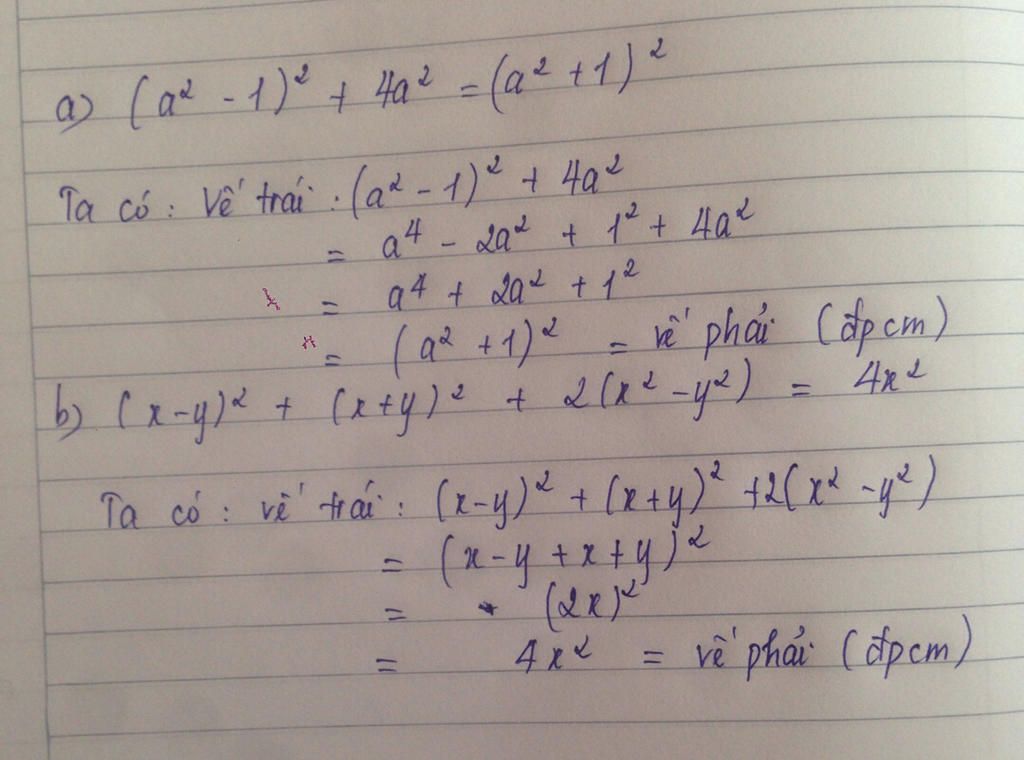 a) (a² - 1)² + 4a² = (a² + 1)²
Ta có : Vế trái : (a² - 1)² + 4a²
= a⁴ - 2a² + 1² + 4a²
= a⁴ + 2a² + 1²
= (a² + 1)² = vế phải (đpcm)
b) (x-y)² + (x+y)² + 2(x² - y²) = 4x²
Ta có : vế trái : (x-y)² + (x+y)² + 2(x² - y²)
= (x - y + x + y)²
= (2x)²
= 4x² = vế phải (đpcm)